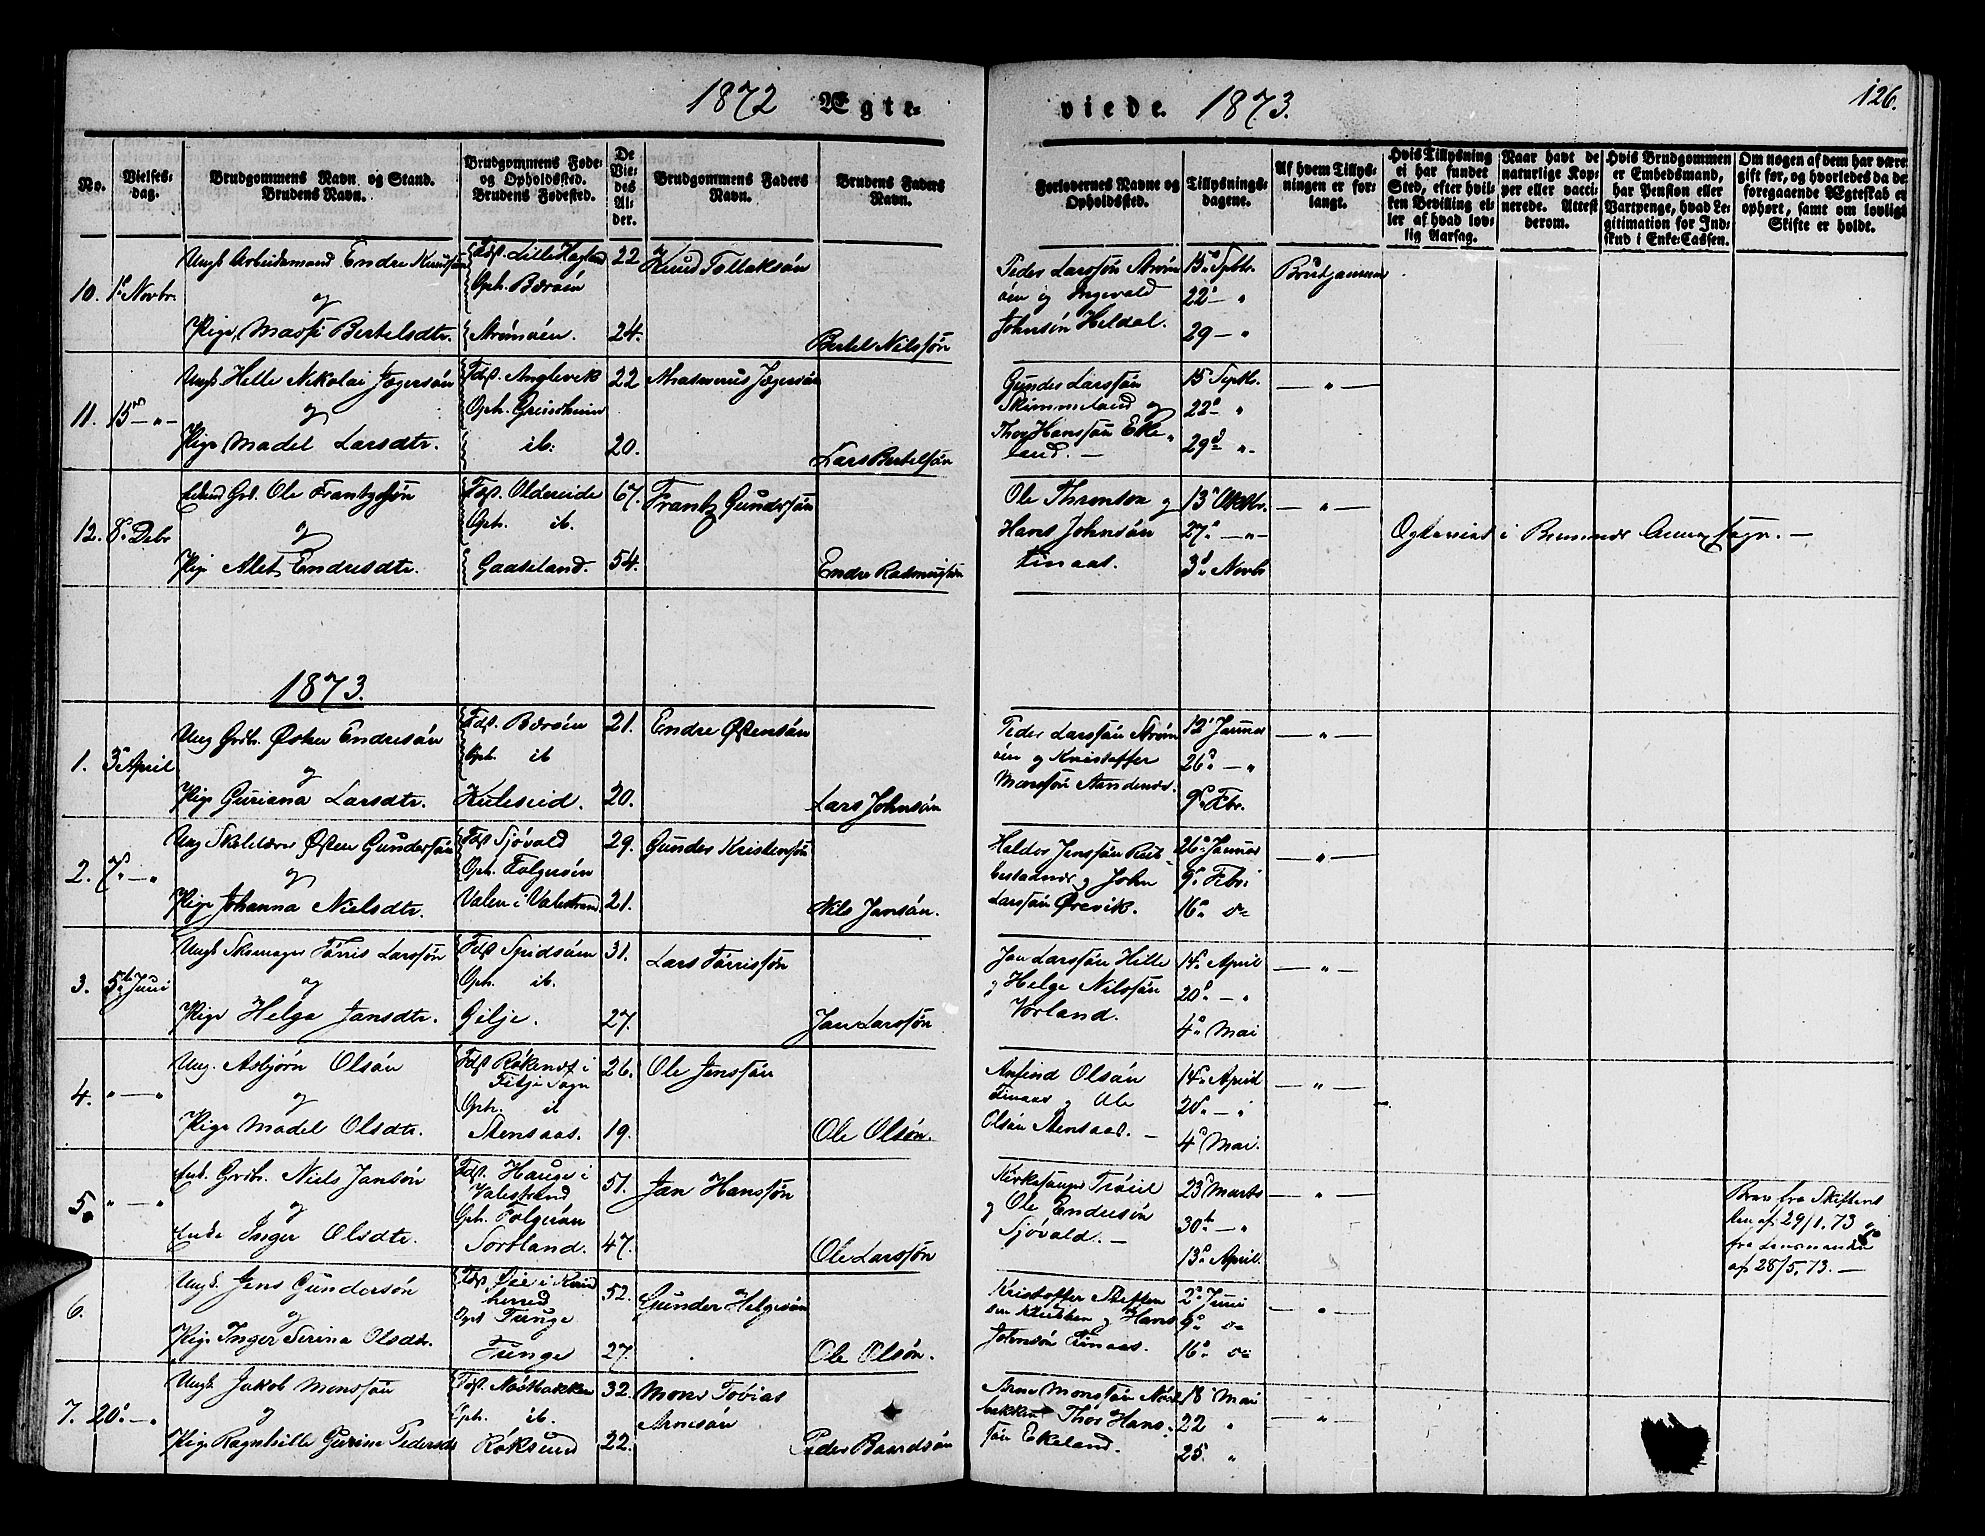 1872 Ægte-
viede. 1873.
126.
No.
Vielses-
dag.
Brudgommens Navn og Stand.
Brudens Navn.
Brudgommens Føde-
og Opholdssted.
Brudens Fødested.
De
Vie-
des
Al-
der.
Brudgommens Faders
Navn.
Brudens Faders
Navn.
Forlovernes Navne og
Opholdssted.
Tillysnings-
dagene.
Af hvem Tillys-
ningen er for-
langt.
Hvis Tillysning
ei har fundet
Sted, efter hvil-
ken Bevilling el-
ler af hvad lov-
lig Aarsag.
Naar havt de
naturlige Kop-
per eller vacci-
nerede. Attest
derom.
Hvis Brudgommen
er Embedsmand,
har Pension eller
Vartpenge, hvad Le-
gitimation for Ind-
skud i Enke-Cassen.
Om nogen af dem har være
gift før, og hvorledes da de
foregaaende Ægteskab e
ophørt, samt om lovligt
Skifte er holdt.
10. 1ste Novbr.
Ungk. Arbeidsmand Endre Knudsøn
og
Pige Marthe Bertelsdtr.
Fdst. Lille
Oph. Børøen
Strømøen.
22
24.
Knud Tollaksøn
Bertel Nilssøn
Peder Larssøn Strøm
øen og Ingevald
Johnsøn Heldal.
15de Septbr.
22 — "
29 — "
Brudgommen
11. 15de — " —
Ungk. Helle Nikolai Jøgersøn
og
Pige Madel Larsdtr.
Fdst. Anglevik
Oph. Grindheim
ib.
22
20.
Rasmus Jøgersøn
Lars Bertelsøn
Gunder Larssøn
Skimmeland og
Thor Hanssøn Eke-
land. —
15 Septbr.
22 — "
29 — "
— " —
12. 8de Debr
Enkem. Grb. Ole Frantzsøn
og
Pige Alet Endresdtr.
Fdst. Oldereide
Oph. ib.
Gaaseland.
67.
54.
Frantz Gundersøn
Endre Rasmussøn
Ole Thronson og
Hans Johnsøn
Finaas.
13de Oktbr.
27de — " —
3die Novbr
— " —
Ægteviet i Bremnes Annexsogn. —
1873.
1. 3die April
Ung Grbr. Østen Endresøn
og
Pige Guriana Larsdtr.
Fdst. Børøen
Oph. ib
Kuleseid.
21.
20.
Endre Østensøn
Lars Johnsøn
Peder Larssøn Strøm
øen og Kristoffer
Monssøn
12 Januar
26de — "
9de Febr.
— " —
2. 7de — "
Ung Østen Gundersøn
og
Pige Johanna Nielsdtr.
Fdst Sjøvold
Oph. Folgerøen
Valen i Valestrand
29.
21.
Gunder Kristensøn
Nils Jansøn.
Haldor Jenssøn
og John
Larssøn Ørevik.
26de Januar
9de Febr
16de do
— " —
3. 5te Juni
Ungk Skomager Førris Larssøn
og
Pige Helga Jansdtr.
Fdst Spidsøen
Oph. ib.
Gilje.
31.
27.
Lars Førrissøn
Jan Larssøn
Jan Larssøn Hille
og Helge Nilssøn
Vorland.
14de April
20de — "
4de Mai
— " —
4. " — "
Ung. Asbjørn Olsøn
og
Pige Madel Olsdtr.
Fdst Røkenes i
Fitje Sogn
Oph. ib
Stensaas.
26.
19.
Ole Jenssøn
Ole Olsøn.
Anfind Olsøn
Finaas og Ole
Olsøn Stensaas. —
14de April
20de — "
4de Mai.
— " —
5. " — "
Enk. Grbr. Niels Jansøn
og
Enke Inger Olsdtr.
Fdst. Hauge i
Valestrand
Oph. Folgerøen
Sortland.
51.
47.
Jan Hanssøn
Ole Larssøn
Kirkesanger Trøeil
og Ole Endersøn
Sjøvold. —
23de Marts
30te — "
13de April
— " —
Brev fra Skifteret
ten af 29/1.73 og
fra Lensmanden
af 28/5.73. —
6.
Ungk. Jens Gundersøn
og
Pige Inger Serina Olsdtr.
Fdst Øie i Kvind
herred
Oph Tunge
Tunge
52.
27.
Gunder Helgesøn
Ole Olsøn.
Kristoffer Steffen
sen Klubben og Hans
Johnsøn Finaas.
2den Juni
9de do
16de do
— " —
7. 20de — "
Ungk. Jakob Monssøn
og
Pige Ragnhilde Gurine Pedersdtr
Fdst. Nøstbakken
Oph. ib.
Røksund
32.
22.
Mons Tobias
Arnesøn
Peder Baardsøn
Arne Monssøn Nøst
bakken Thor Hans-
søn Ekeland.
18 Mai
22 "
25. "
— " —